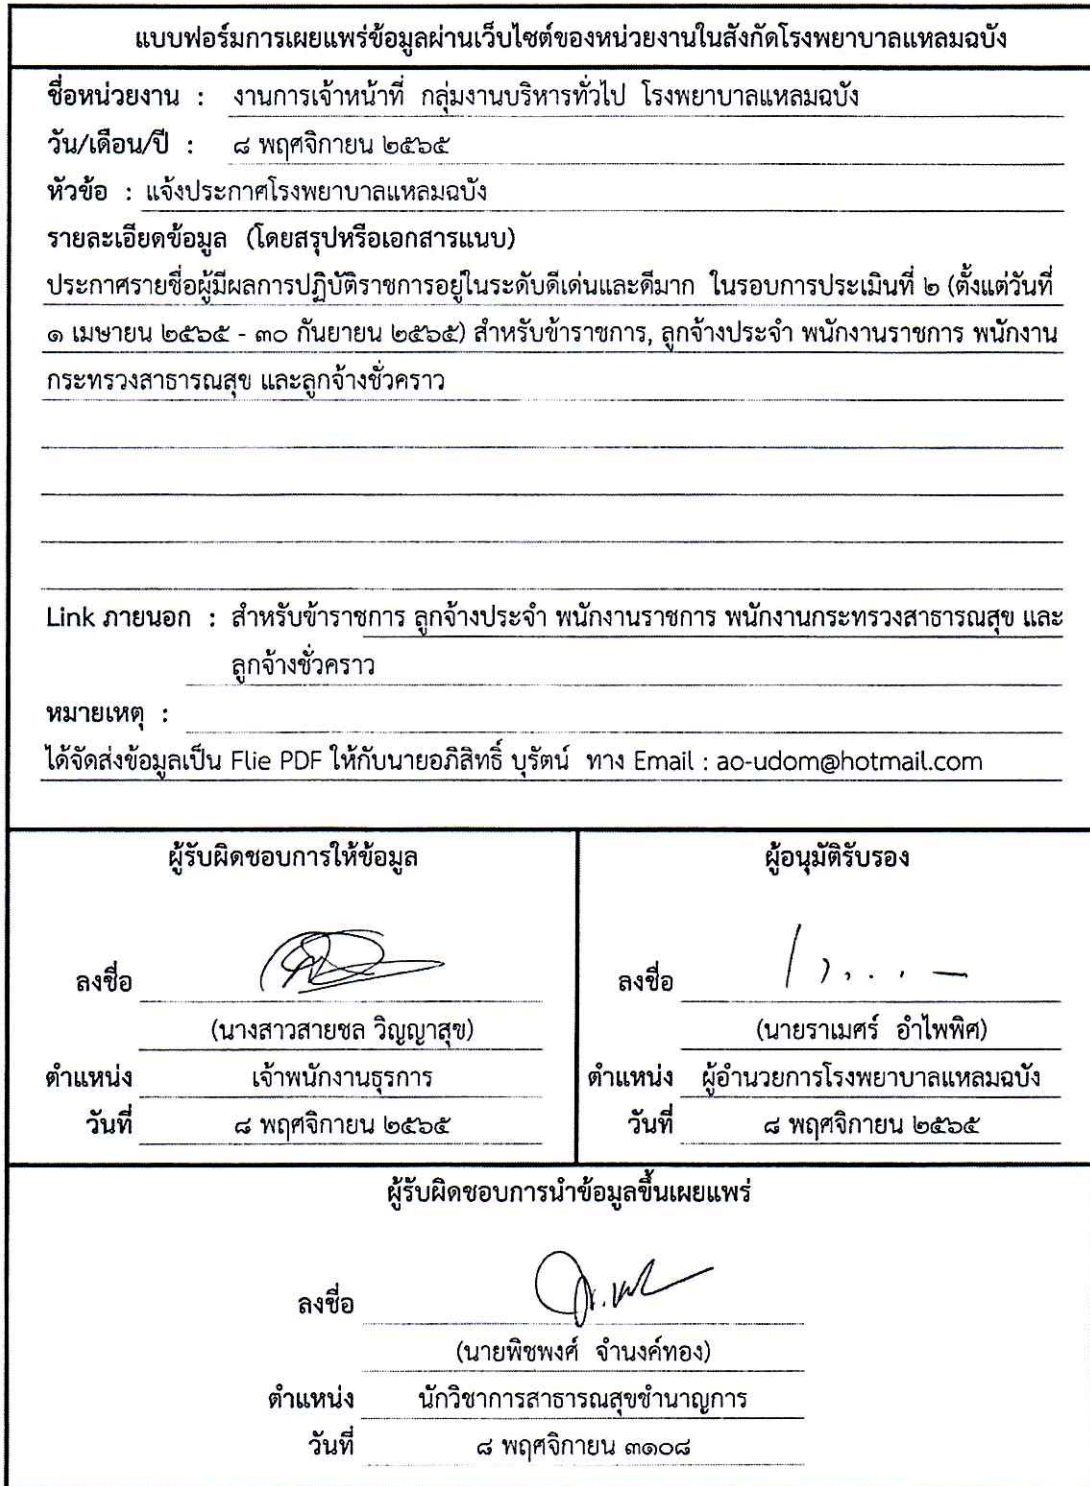 แบบฟอร์มการเผยแพร่ข้อมูลผ่านเว็บไซต์ของหน่วยงานในสังกัดโรงพยาบาลแหลมฉบัง
ชื่อหน่วยงาน : งานการเจ้าหน้าที่ กลุ่มงานบริหารทั่วไป โรงพยาบาลแหลมฉบัง
วัน/เดือน/ปี : ๘ พฤศจิกายน ๒๕๖๕
หัวข้อ : แจ้งประกาศโรงพยาบาลแหลมฉบัง
รายละเอียดข้อมูล (โดยสรุปหรือเอกสารแนบ)
ประกาศรายชื่อผู้มีผลการปฏิบัติราชการอยู่ในระดับดีเด่นและดีมาก ในรอบการประเมินที่ ๒ (ตั้งแต่วันที่
๑ เมษายน ๒๕๖๕ - ๓๐ กันยายน ๒๕๖๕) สำหรับข้าราชการ, ลูกจ้างประจำ พนักงานราชการ พนักงาน
กระทรวงสาธารณสุข และลูกจ้างชั่วคราว
Link ภายนอก : สำหรับข้าราชการ ลูกจ้างประจำ พนักงานราชการ พนักงานกระทรวงสาธารณสุข และ
ลูกจ้างชั่วคราว
หมายเหตุ :
ได้จัดส่งข้อมูลเป็น Flie PDF ให้กับนายอภิสิทธิ์ บุรัตน์ ทาง Email : ao-udom@hotmail.com
ผู้รับผิดชอบการให้ข้อมูล
ลงชื่อ
(นางสาวสายชล วิญญาสุข)
ตำแหน่ง เจ้าพนักงานธุรการ
วันที่ ๘ พฤศจิกายน ๒๕๖๕
ผู้อนุมัติรับรอง
ลงชื่อ
(นายราเมศร์ อำไพพิศ)
ตำแหน่ง ผู้อำนวยการโรงพยาบาลแหลมฉบัง
วันที่ ๘ พฤศจิกายน ๒๕๖๕
ผู้รับผิดชอบการนำข้อมูลขึ้นเผยแพร่
ลงชื่อ
(นายพิชพงศ์ จำนงค์ทอง)
ตำแหน่ง นักวิชาการสาธารณสุขชำนาญการ
วันที่ ๘ พฤศจิกายน ๓๑๐๘